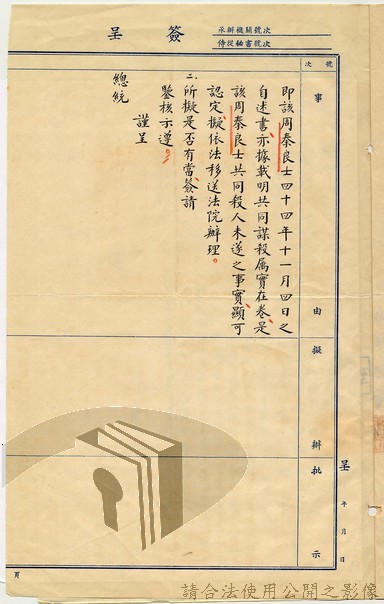 簽呈
承辦機關號次
侍從秘書號次
號次
事由
擬辦
批示
呈 年 月 日
即該周秦良士四十四年十一月四日之
自述書、亦據載明共同謀殺屬實在卷、是
該周秦良士共同殺人未遂之事實、顯可
認定、擬依法移送法院辦理。
二、所擬是否有當、簽請
鑒核示遵。
謹呈
總統
頁
請合法使用公開之影像